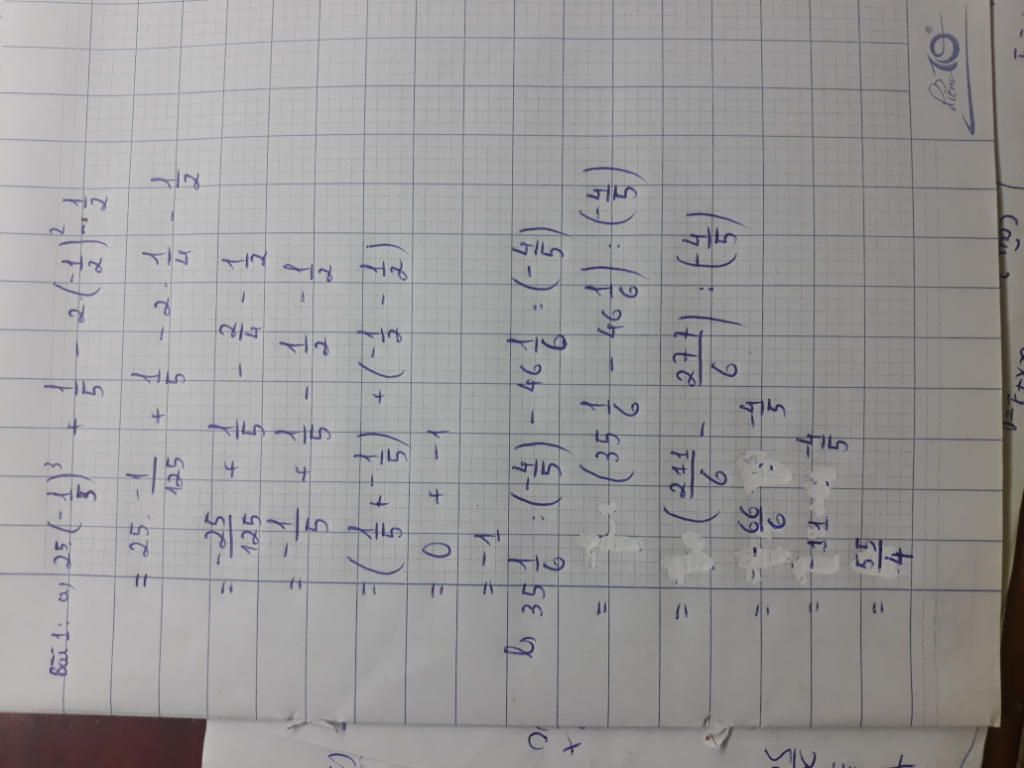 Bài 1: a) 25(-1/5)³ + 1/5 - 2.(-1/2)² - 1/2
= 25. -1/125 + 1/5 - 2. 1/4 - 1/2
= -25/125 + 1/5 - 2/4 - 1/2
= -1/5 + 1/5 - 1/2 - 1/2
= (1/5 + -1/5) + (-1/2 - 1/2)
= 0 + -1
= -1
b 35 1/6 : (-4/5) - 46 1/6 : (-4/5)
= (35 1/6 - 46 1/6) : (-4/5)
= (211/6 - 277/6) : (-4/5)
= -66/6 : -4/5
= -11 : -4/5
= 55/4
Điểm 10